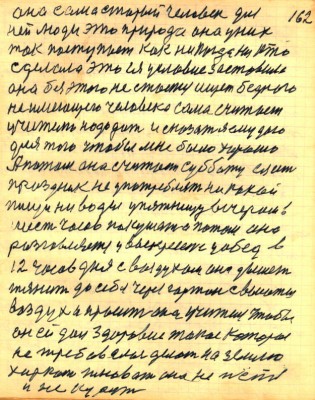 162
она сама старый человек для
ней люди это природа она у них
так поступает как никогда никто
сделала это ея условие заставила
она без этого не станет ищет бедного
не имеющего человека сама считает
учителю пододит и сказать я слу
для того чтобы мне было хорошо
А потом она считает субботу сделает
праздник не употреблять никакой
пищи ни воды у пятницу вечером в
шесть часов покушать а потом она
разговляется у воскресенье у обед в
12 часов дня с воздухом она дышет
тянить до себя через гортань с высоты
воздух а просит она учителя чтобы
он ей дал здоровие такое которое
не требовала делать на землю
харкать плювать она не пьет
и не курит